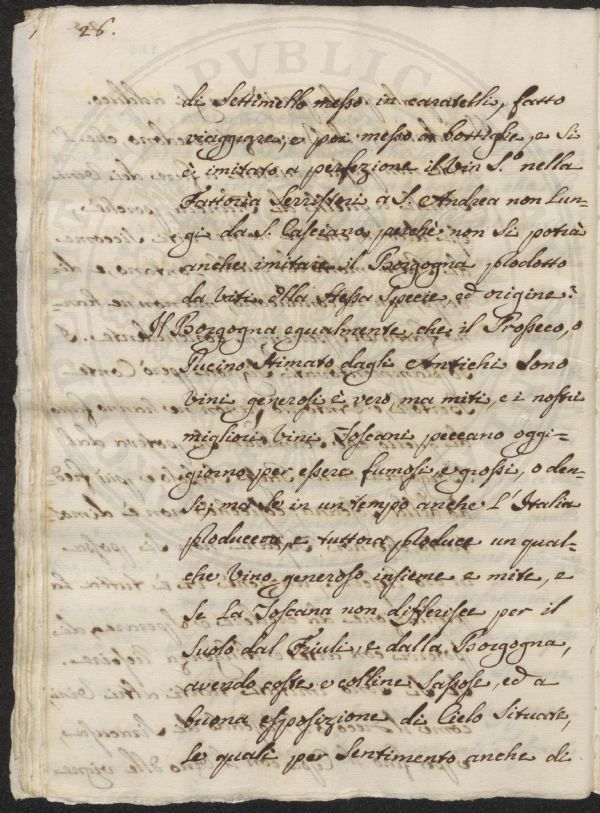 26.
di Settimello messo in caratelli, fatto
viaggiare, e poi messo in bottiglie, e si
è imitato a perfezione il Vin S.º nella
Fattoria Serristori a S. Andrea non Lun-
gi da S. Casciano, perchè non si potrà
anche imitare il Borgogna prodotto
da Viti della stessa specie, ed origine?
Il Borgogna egualmente che il Prosseco, o
Pucino stimato dagli Antichi sono
vini generosi è vero, ma miti, e i nostri
migliori Vini Toscani peccano oggi-
giorno per essere fumosi, e grossi, o den-
si; ma se in un tempo anche L'Italia
produceva, e tuttora produce un qual-
che Vino generoso insieme e mite, e
se La Toscana non differisce per il
suolo dal Friuli, e dalla Borgogna,
avendo coste e colline sassose, ed a
buona esposizione di Cielo situate,
Le quali per sentimento anche di
PVBLIC